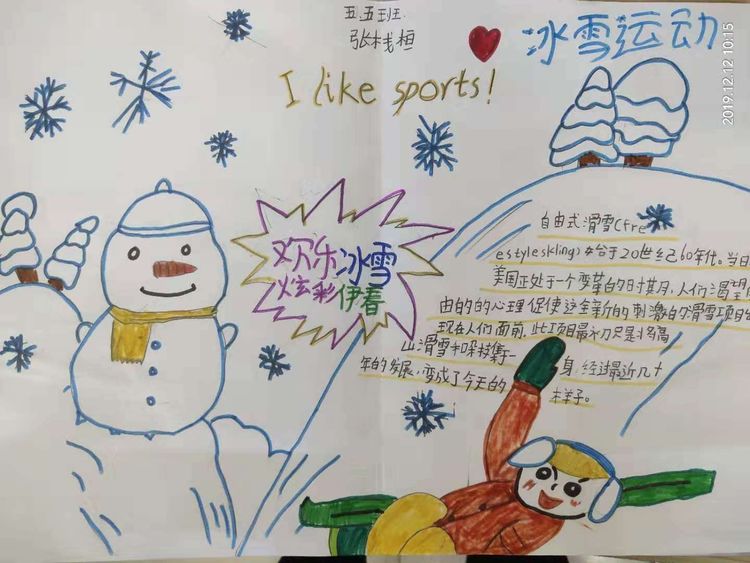 五.五班
张栈桓
冰雪运动
I like sports!
2019.12.12 10:15
欢乐冰雪
炫彩伊春
自由式滑雪(fre
estyleskling)始于20世纪60年代。当日
美国正处于一个变革的时期,人们渴望
由的的心理促使这全新的刺激的滑雪项目
现在人们面前,此项目最初只是将高
山滑雪和杂技集一身,经过最近几十
年的发展,变成了今天的样子。